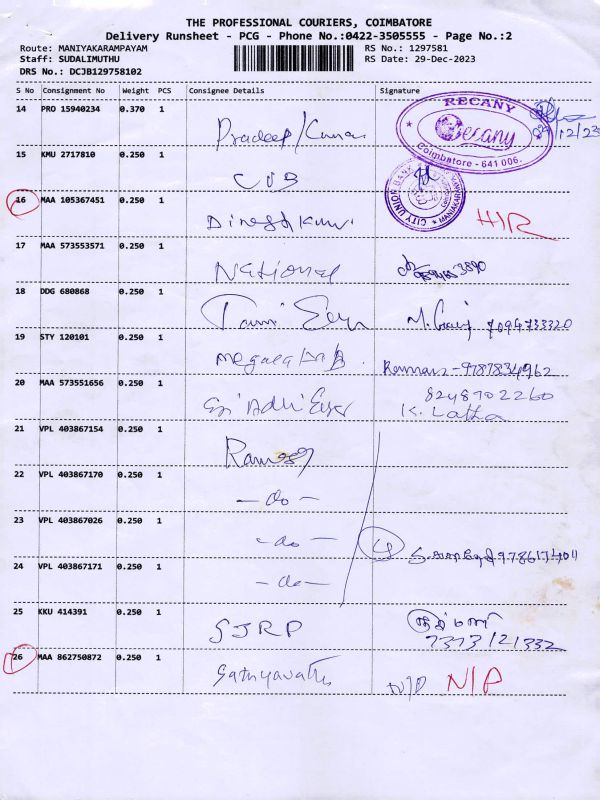 THE PROFESSIONAL COURIERS, COIMBATORE
Delivery Runsheet - PCG - Phone No.:0422-3505555 - Page No.:2
Route: MANIYAKARAMPAYAM RS No.: 1297581
Staff: SUDALIMUTHU RS Date: 29-Dec-2023
DRS No.: DCJB129758102
S No Consignment No Weight PCS Consignee Details Signature
14 PRO 15940234 0.370 1 Pradeep/Kumar
RECANY
Recany
Coimbatore - 641 006.
12/23
15 KMU 2717810 0.250 1 CUB
CITY UNION BANK
16 MAA 105367451 0.250 1 Dinesh Kumar H/R
17 MAA 573553571 0.250 1 National
18 DDG 680868 0.250 1 7094733320
19 STY 120101 0.250 1 9787834962
20 MAA 573551656 0.250 1 8248702260
K. Latha
21 VPL 403867154 0.250 1 Ramesh
22 VPL 403867170 0.250 1 - do -
23 VPL 403867026 0.250 1 - do - 4
24 VPL 403867171 0.250 1 - do -
25 KKU 414391 0.250 1 SJRP
7373121332
26 MAA 862750872 0.250 1 Sathyavathi N/P N/P